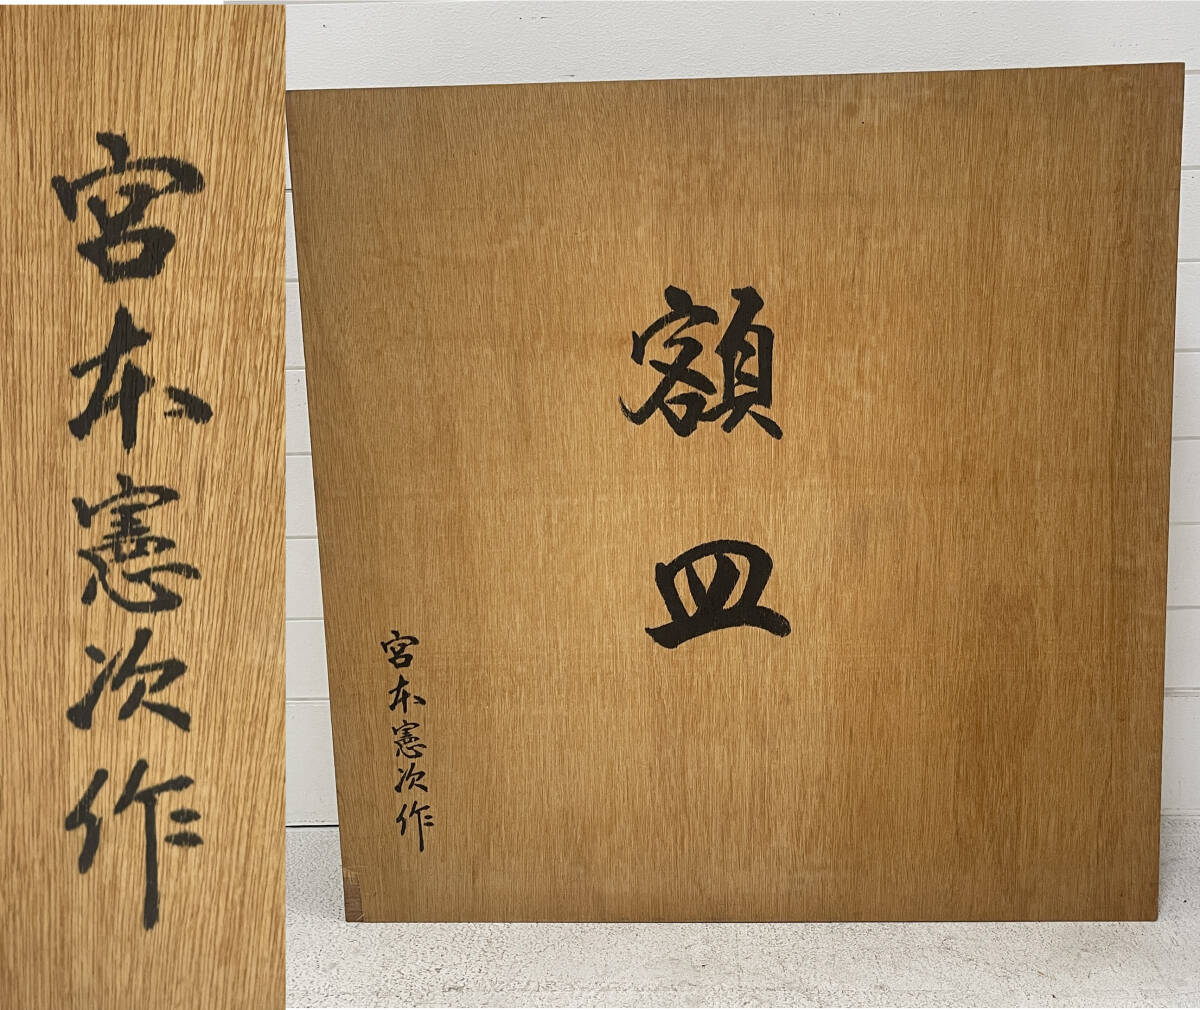 宮本憲次作
額皿
宮本憲次作